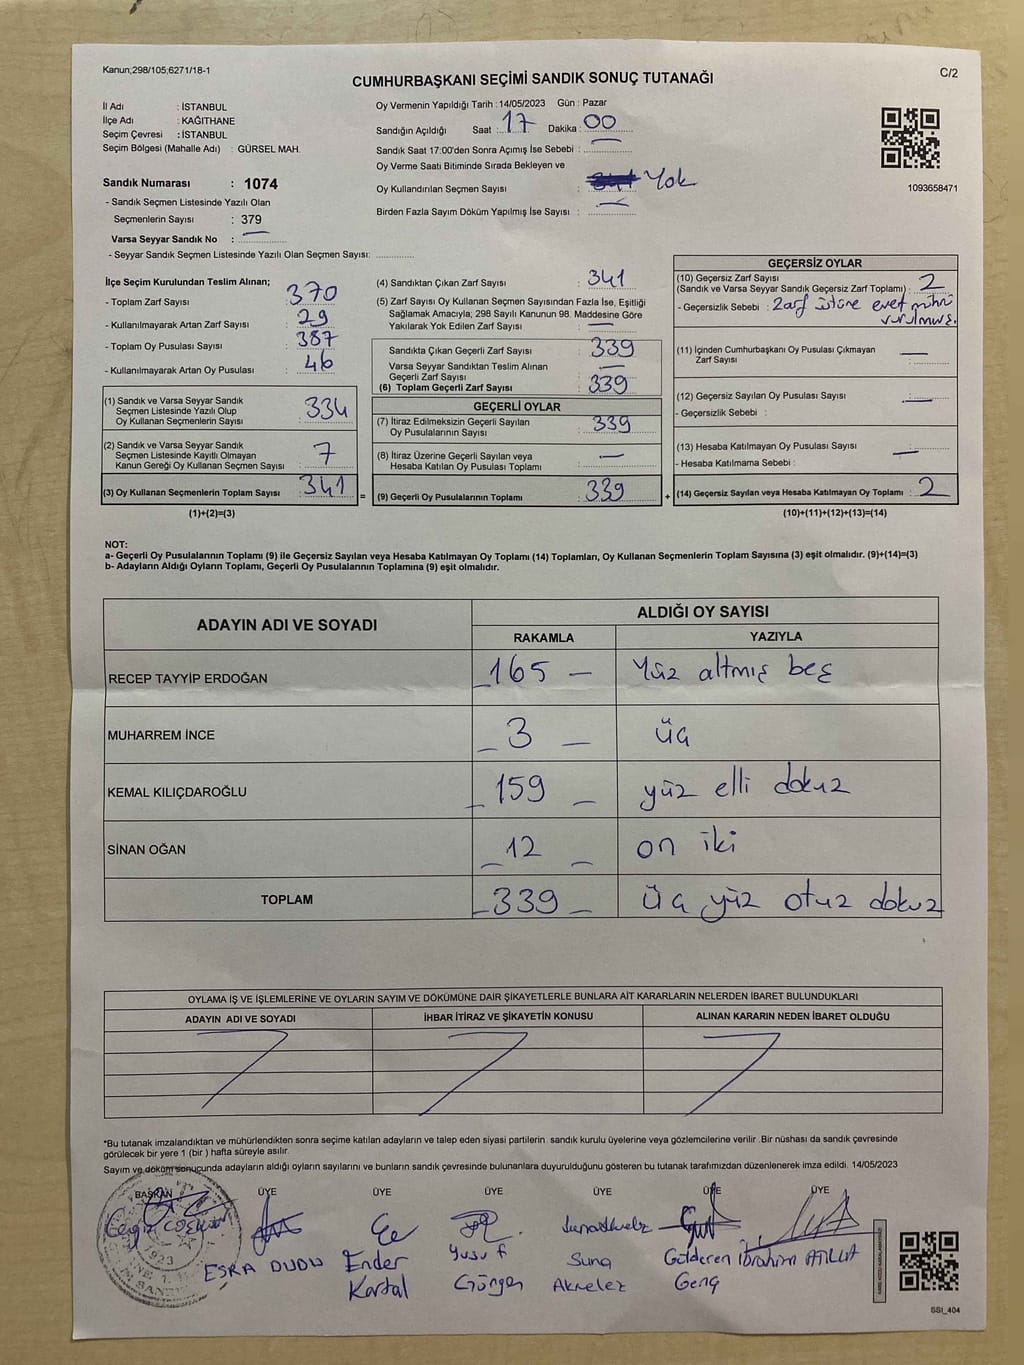 Kanun;298/105;6271/18-1
C/2
CUMHURBAŞKANI SEÇİMİ SANDIK SONUÇ TUTANAĞI
İl Adı : İSTANBUL
İlçe Adı : KAĞITHANE
Seçim Çevresi : İSTANBUL
Seçim Bölgesi (Mahalle Adı) : GÜRSEL MAH.
Sandık Numarası : 1074
- Sandık Seçmen Listesinde Yazılı Olan
Seçmenlerin Sayısı : 379
Varsa Seyyar Sandık No : —
- Seyyar Sandık Seçmen Listesinde Yazılı Olan Seçmen Sayısı:
Oy Vermenin Yapıldığı Tarih : 14/05/2023 Gün : Pazar
Sandığın Açıldığı Saat : 17 Dakika : 00
Sandık Saat 17:00'den Sonra Açımış İse Sebebi : —
Oy Verme Saati Bitiminde Sırada Bekleyen ve
Oy Kullandırılan Seçmen Sayısı : Yok
Birden Fazla Sayım Döküm Yapılmış İse Sayısı : —
1093658471
İlçe Seçim Kurulundan Teslim Alınan;
- Toplam Zarf Sayısı : 370
- Kullanılmayarak Artan Zarf Sayısı : 29
- Toplam Oy Pusulası Sayısı : 387
- Kullanılmayarak Artan Oy Pusulası : 46
(1) Sandık ve Varsa Seyyar Sandık
Seçmen Listesinde Yazılı Olup
Oy Kullanan Seçmenlerin Sayısı : 334
(2) Sandık ve Varsa Seyyar Sandık
Seçmen Listesinde Kayıtlı Olmayan
Kanun Gereği Oy Kullanan Seçmen Sayısı : 7
(3) Oy Kullanan Seçmenlerin Toplam Sayısı : 341
(1)+(2)=(3)
=
(4) Sandıktan Çıkan Zarf Sayısı : 341
(5) Zarf Sayısı Oy Kullanan Seçmen Sayısından Fazla İse, Eşitliği
Sağlamak Amacıyla; 298 Sayılı Kanunun 98. Maddesine Göre
Yakılarak Yok Edilen Zarf Sayısı : —
Sandıkta Çıkan Geçerli Zarf Sayısı : 339
Varsa Seyyar Sandıktan Teslim Alınan
Geçerli Zarf Sayısı : —
(6) Toplam Geçerli Zarf Sayısı : 339
GEÇERLİ OYLAR
(7) İtiraz Edilmeksizin Geçerli Sayılan
Oy Pusulalarının Sayısı : 339
(8) İtiraz Üzerine Geçerli Sayılan veya
Hesaba Katılan Oy Pusulası Toplamı : —
(9) Geçerli Oy Pusulalarının Toplamı : 339
+
GEÇERSİZ OYLAR
(10) Geçersiz Zarf Sayısı
(Sandık ve Varsa Seyyar Sandık Geçersiz Zarf Toplamı) : 2
- Geçersizlik Sebebi : Zarf üstüne evet mührü
vurulmuş.
(11) İçinden Cumhurbaşkanı Oy Pusulası Çıkmayan
Zarf Sayısı : —
(12) Geçersiz Sayılan Oy Pusulası Sayısı : —
- Geçersizlik Sebebi :
(13) Hesaba Katılmayan Oy Pusulası Sayısı : —
- Hesaba Katılmama Sebebi :
(14) Geçersiz Sayılan veya Hesaba Katılmayan Oy Toplamı : 2
(10)+(11)+(12)+(13)=(14)
NOT:
a- Geçerli Oy Pusulalarının Toplamı (9) ile Geçersiz Sayılan veya Hesaba Katılmayan Oy Toplamı (14) Toplamları, Oy Kullanan Seçmenlerin Toplam Sayısına (3) eşit olmalıdır. (9)+(14)=(3)
b- Adayların Aldığı Oyların Toplamı, Geçerli Oy Pusulalarının Toplamına (9) eşit olmalıdır.
ADAYIN ADI VE SOYADI
ALDIĞI OY SAYISI
RAKAMLA YAZIYLA
RECEP TAYYİP ERDOĞAN — 165 — Yüz altmış beş
MUHARREM İNCE — 3 — üç
KEMAL KILIÇDAROĞLU — 159 — yüz elli dokuz
SİNAN OĞAN — 12 — on iki
TOPLAM — 339 — üç yüz otuz dokuz
OYLAMA İŞ VE İŞLEMLERİNE VE OYLARIN SAYIM VE DÖKÜMÜNE DAİR ŞİKAYETLERLE BUNLARA AİT KARARLARIN NELERDEN İBARET BULUNDUKLARI
ADAYIN ADI VE SOYADI İHBAR İTİRAZ VE ŞİKAYETİN KONUSU ALINAN KARARIN NEDEN İBARET OLDUĞU
*Bu tutanak imzalandıktan ve mühürlendikten sonra seçime katılan adayların ve talep eden siyasi partilerin sandık kurulu üyelerine veya gözlemcilerine verilir .Bir nüshası da sandık çevresinde
görülecek bir yere 1 (bir ) hafta süreyle asılır.
Sayım ve döküm sonucunda adayların aldığı oyların sayılarını ve bunların sandık çevresinde bulunanlara duyurulduğunu gösteren bu tutanak tarafımızdan düzenlenerek imza edildi. 14/05/2023
BAŞKAN ÜYE ÜYE ÜYE ÜYE ÜYE ÜYE
1923
ESRA DUDU
Ender
Kartal
Yusuf
Gürgen
Suna
Akyelez
Gülderen
Genç
İbrahim ATILLA
SSI_404